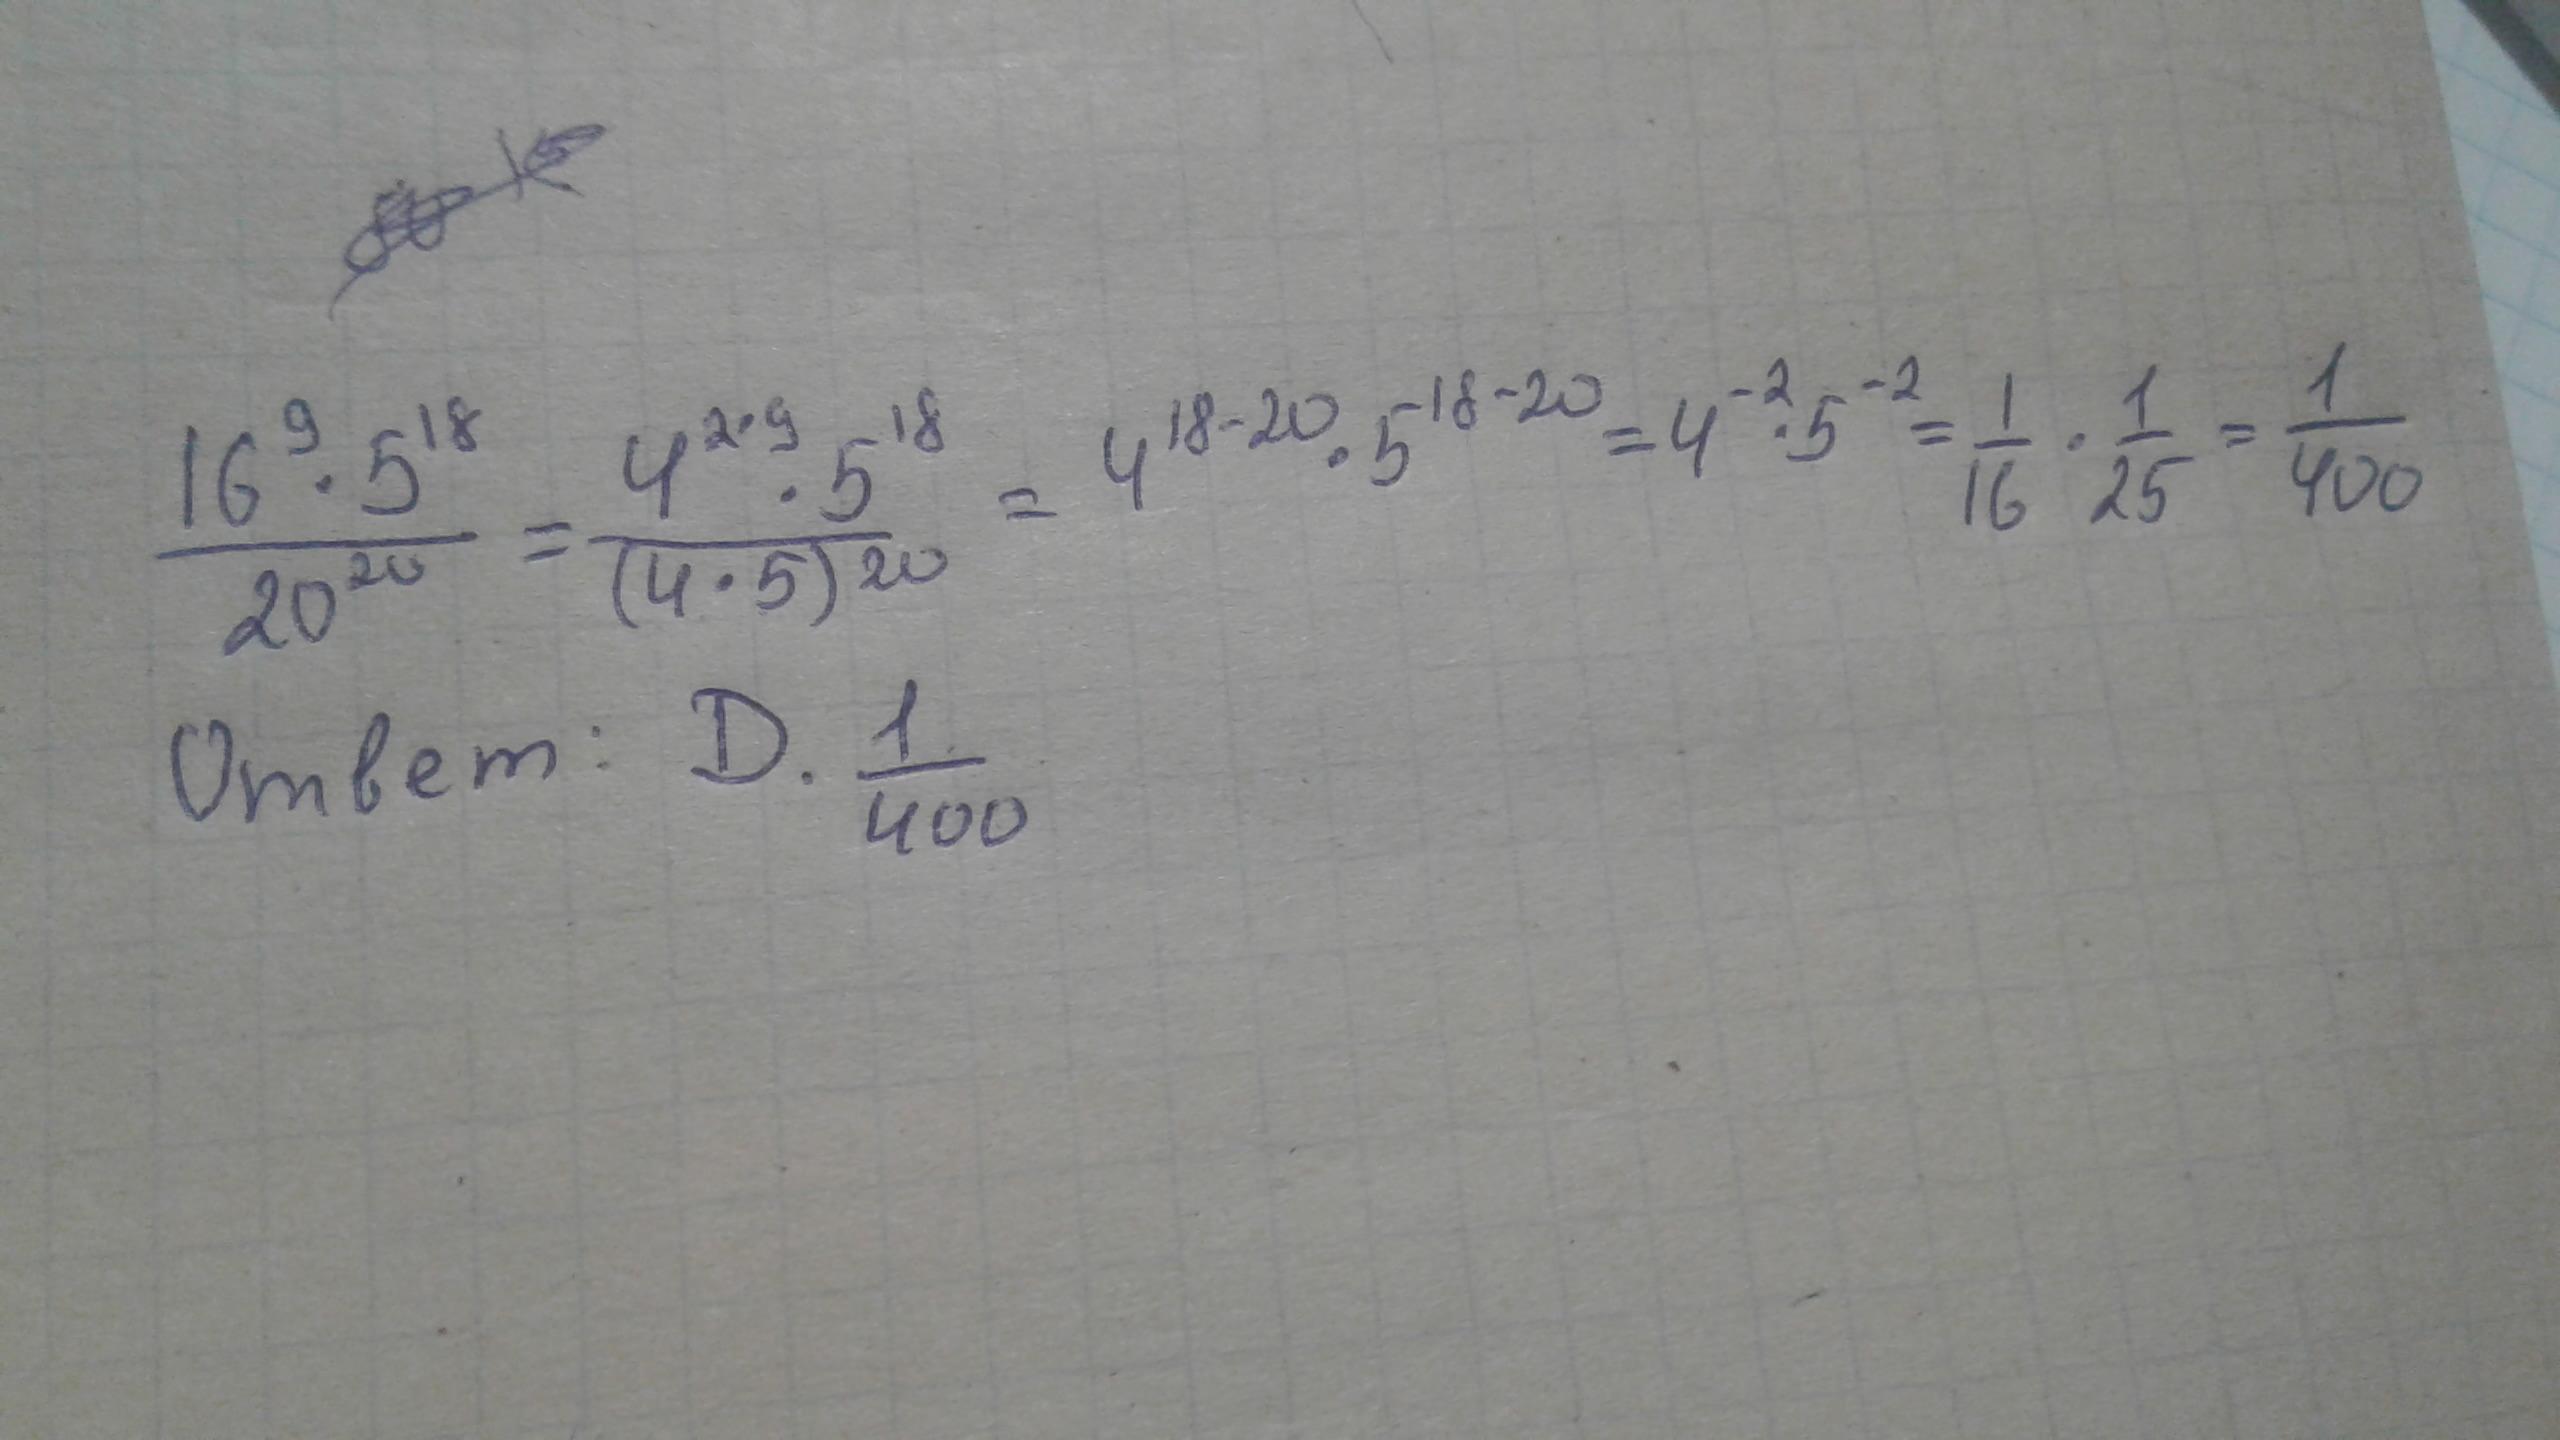 16⁹·5¹⁸/20²⁰ = 4²·⁹·5¹⁸/(4·5)²⁰ = 4¹⁸⁻²⁰·5¹⁸⁻²⁰ = 4⁻²·5⁻² = 1/16 · 1/25 = 1/400
Ответ: D. 1/400